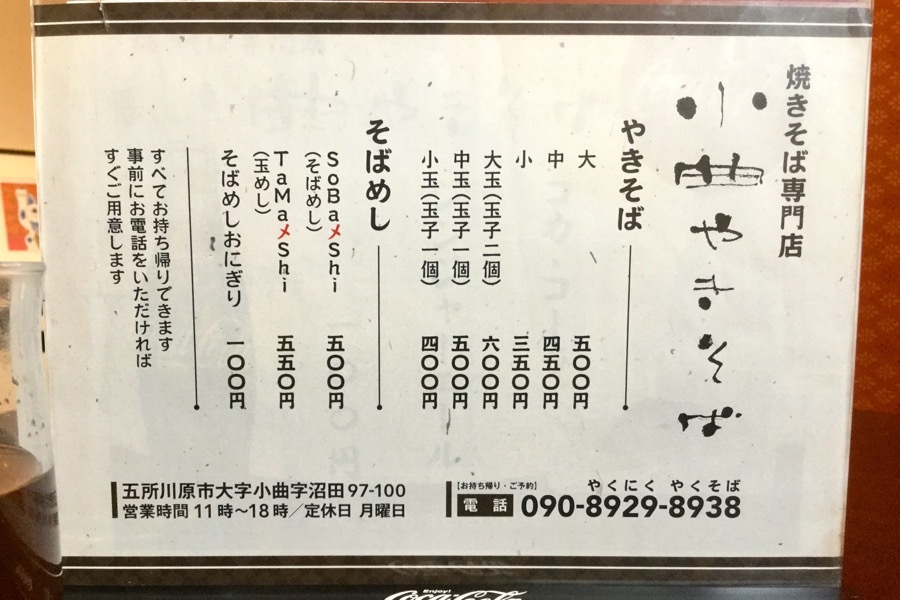 焼きそば専門店
小曲やきそば
やきそば
大 五〇〇円
中 四五〇円
小 三五〇円
大玉(玉子二個) 六〇〇円
中玉(玉子一個) 五〇〇円
小玉(玉子一個) 四〇〇円
そばめし
SoBaメShi
(そばめし) 五〇〇円
TaMaメShi
(玉めし) 五五〇円
そばめしおにぎり 一〇〇円
すべてお持ち帰りできます
事前にお電話をいただければ
すぐご用意します
五所川原市大字小曲字沼田97-100
営業時間 11時〜18時／定休日 月曜日
【お持ち帰り・ご予約】
やくにく やくそば
電話 090-8929-8938
Enjoy!
Coca-Cola